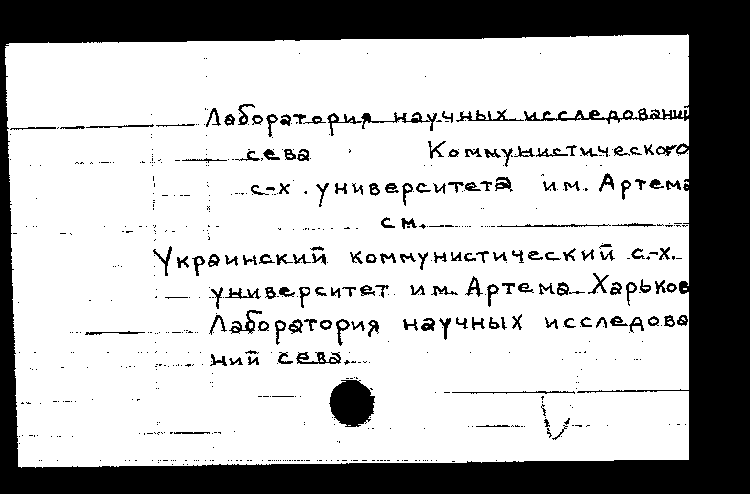 Лаборатория научных исследований
сева Коммунистического
с-х. университета им. Артема
см.
Украинский коммунистический с.-х.
университет им. Артема. Харьков
Лаборатория научных исследова
ний сева.